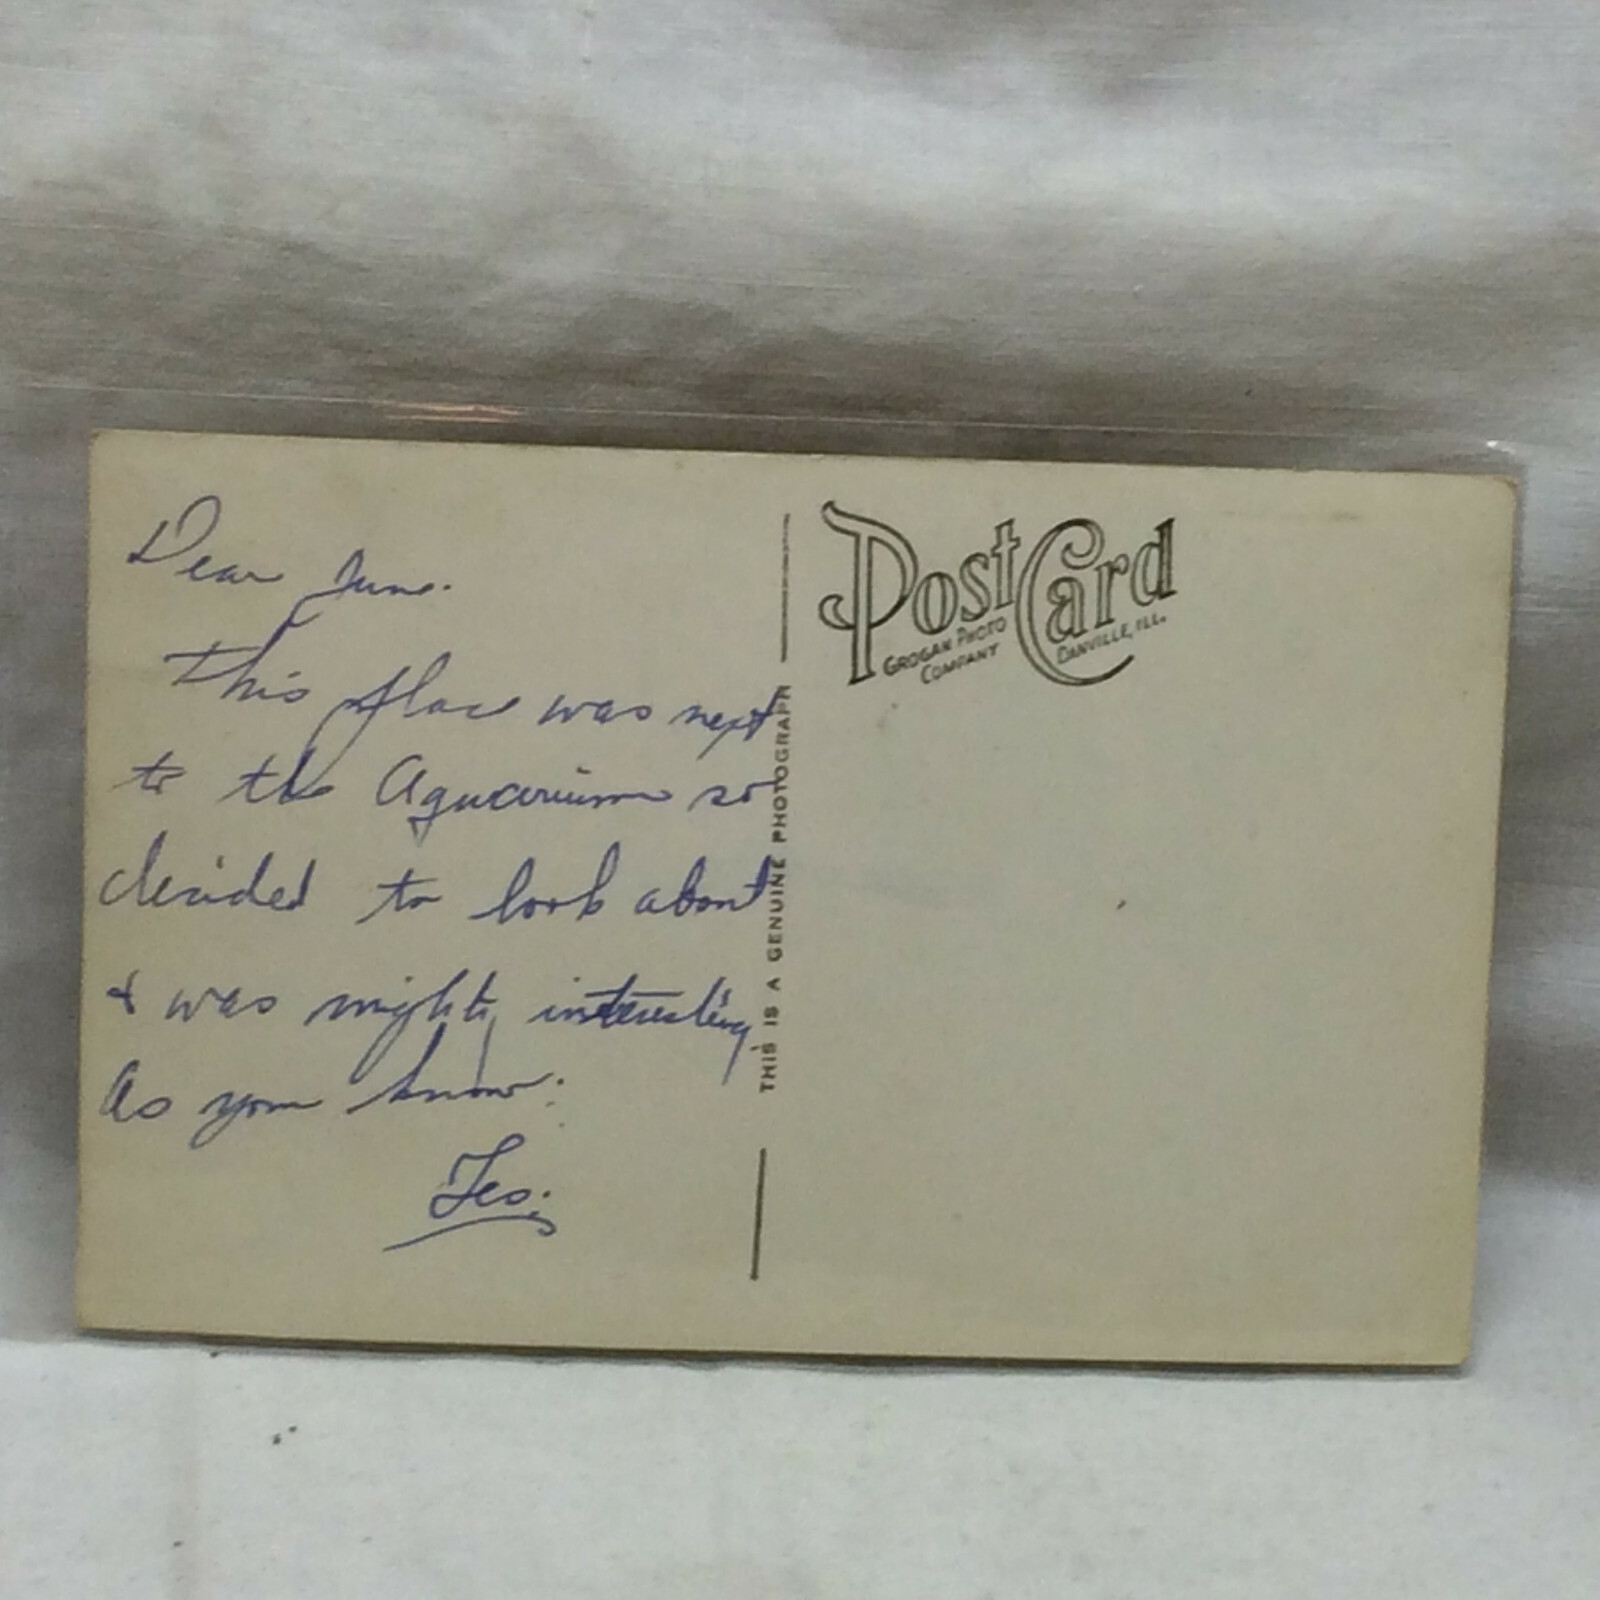 Dear June.
This place was next
to the Aquarium so
decided to look about
& was mighty interesting
As you know.
Les.
Post Card
GROGAN PHOTO
COMPANY
DANVILLE, ILL.
THIS IS A GENUINE PHOTOGRAPH